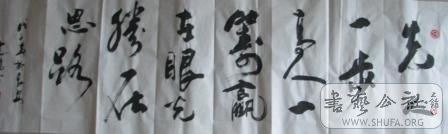 先
一步
高人一
筹赢
在眼光
胜在
思路
書藝公社
WWW.SHUFA.ORG